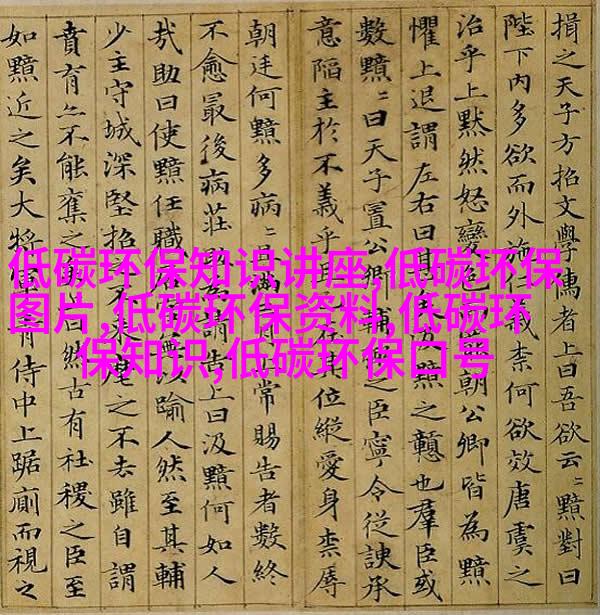 揖之天子方招文學儒者上曰吾欲云〻黯對曰
陛下内多欲而外施仁義柰何欲效唐虞之
治乎上黙然怒變色朝公卿皆為黯
懼上退謂左右曰黯之戇也羣臣或
數黯〻曰天子置公卿輔之臣寧令従諛承
意陷主於不義乎在其位縱愛身柰辱
朝廷何黯多病上常賜告者數終
不愈最後病莊助請告上曰汲黯何如人
㢤助曰使黯任職踰人然至其輔
少主守城深堅招来麾之不去雖自謂
賁育亦不能奪之曰然古有社稷之臣至
如黯近之矣大將青侍中上踞廁而視之
低碳环保知识讲座,低碳环保
图片,低碳环保资料,低碳环
保知识,低碳环保口号